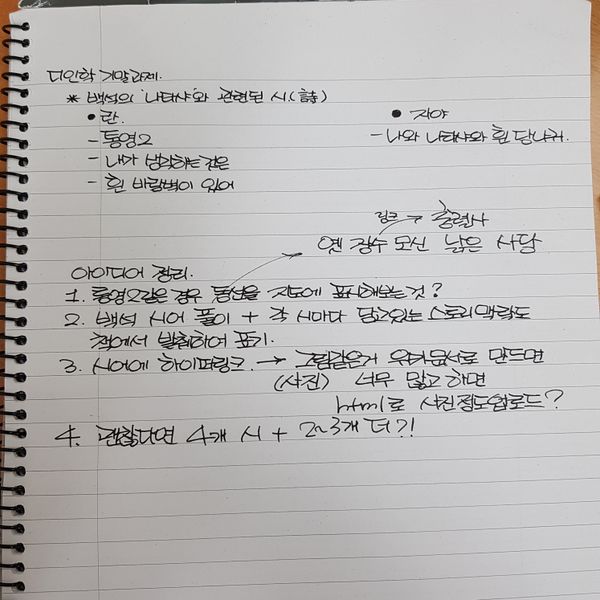 디인학 기말과제.
* 백석의 '나타샤'와 관련된 시(詩)
● 란.
● 지야
- 통영2
- 나와 나타샤와 흰 당나귀.
- 내가 생각하는 것은
- 흰 바람벽이 있어
링크 충렬사
옛 장수 모신 낡은 사당
아이디어 정리.
1. 통영2같은 경우 동선을 지도에 표시해보는 것?
2. 백석 시어 풀이 + 각 시마다 담고있는 스토리맥락도
책에서 발췌하여 표기.
3. 시어에 하이퍼링크. → 그림같은거 위키문서로 만드면
(사진) 너무 많고 하면
html로 사진정도업로드?
4. 괜찮다면 4개 시 + 2~3개 더?!